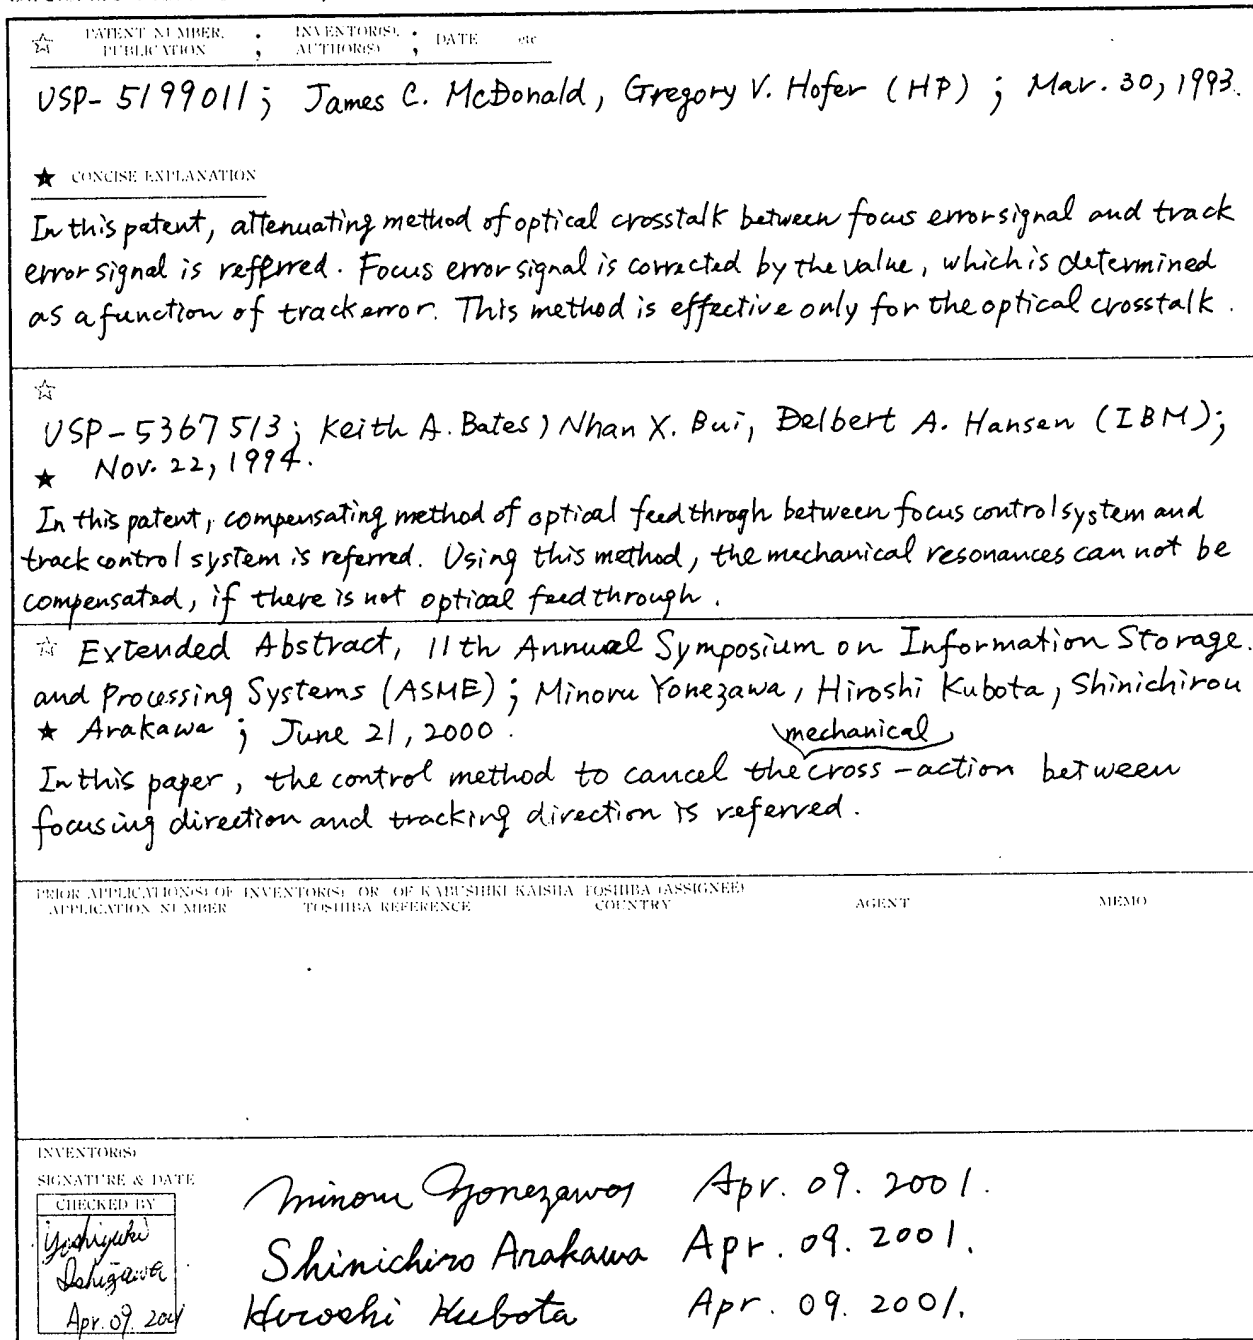 ☆ PATENT NUMBER, PUBLICATION ; INVENTOR(S), AUTHOR(S) ; DATE etc
USP-5199011; James C. McDonald, Gregory V. Hofer (HP) ; Mar. 30, 1993.
★ CONCISE EXPLANATION
In this patent, attenuating method of optical crosstalk between focus error signal and track
error signal is refferred. Focus error signal is corrected by the value, which is determined
as a function of track error. This method is effective only for the optical crosstalk.
☆
USP-5367513; Keith A. Bates, Nhan X. Bui, Delbert A. Hansen (IBM);
★ Nov. 22, 1994.
In this patent, compensating method of optical feedthrogh between focus control system and
track control system is referred. Using this method, the mechanical resonances can not be
compensated, if there is not optical feedthrough.
☆ Extended Abstract, 11th Annual Symposium on Information Storage
and Processing Systems (ASME); Minoru Yonezawa, Hiroshi Kubota, Shinichirou
★ Arakawa ; June 21, 2000.
mechanical
In this paper, the control method to cancel the cross-action between
focusing direction and tracking direction is referred.
PRIOR APPLICATION(S) OF INVENTOR(S) OR OF KABUSHIKI KAISHA TOSHIBA (ASSIGNEE)
APPLICATION NUMBER TOSHIBA REFERENCE COUNTRY AGENT MEMO
INVENTOR(S)
SIGNATURE & DATE
CHECKED BY
Yoshiyuki
Ishizawa
Apr. 09. 2001
Minoru Yonezawa Apr. 09. 2001.
Shinichiro Arakawa Apr. 09. 2001.
Hiroshi Kubota Apr. 09. 2001.